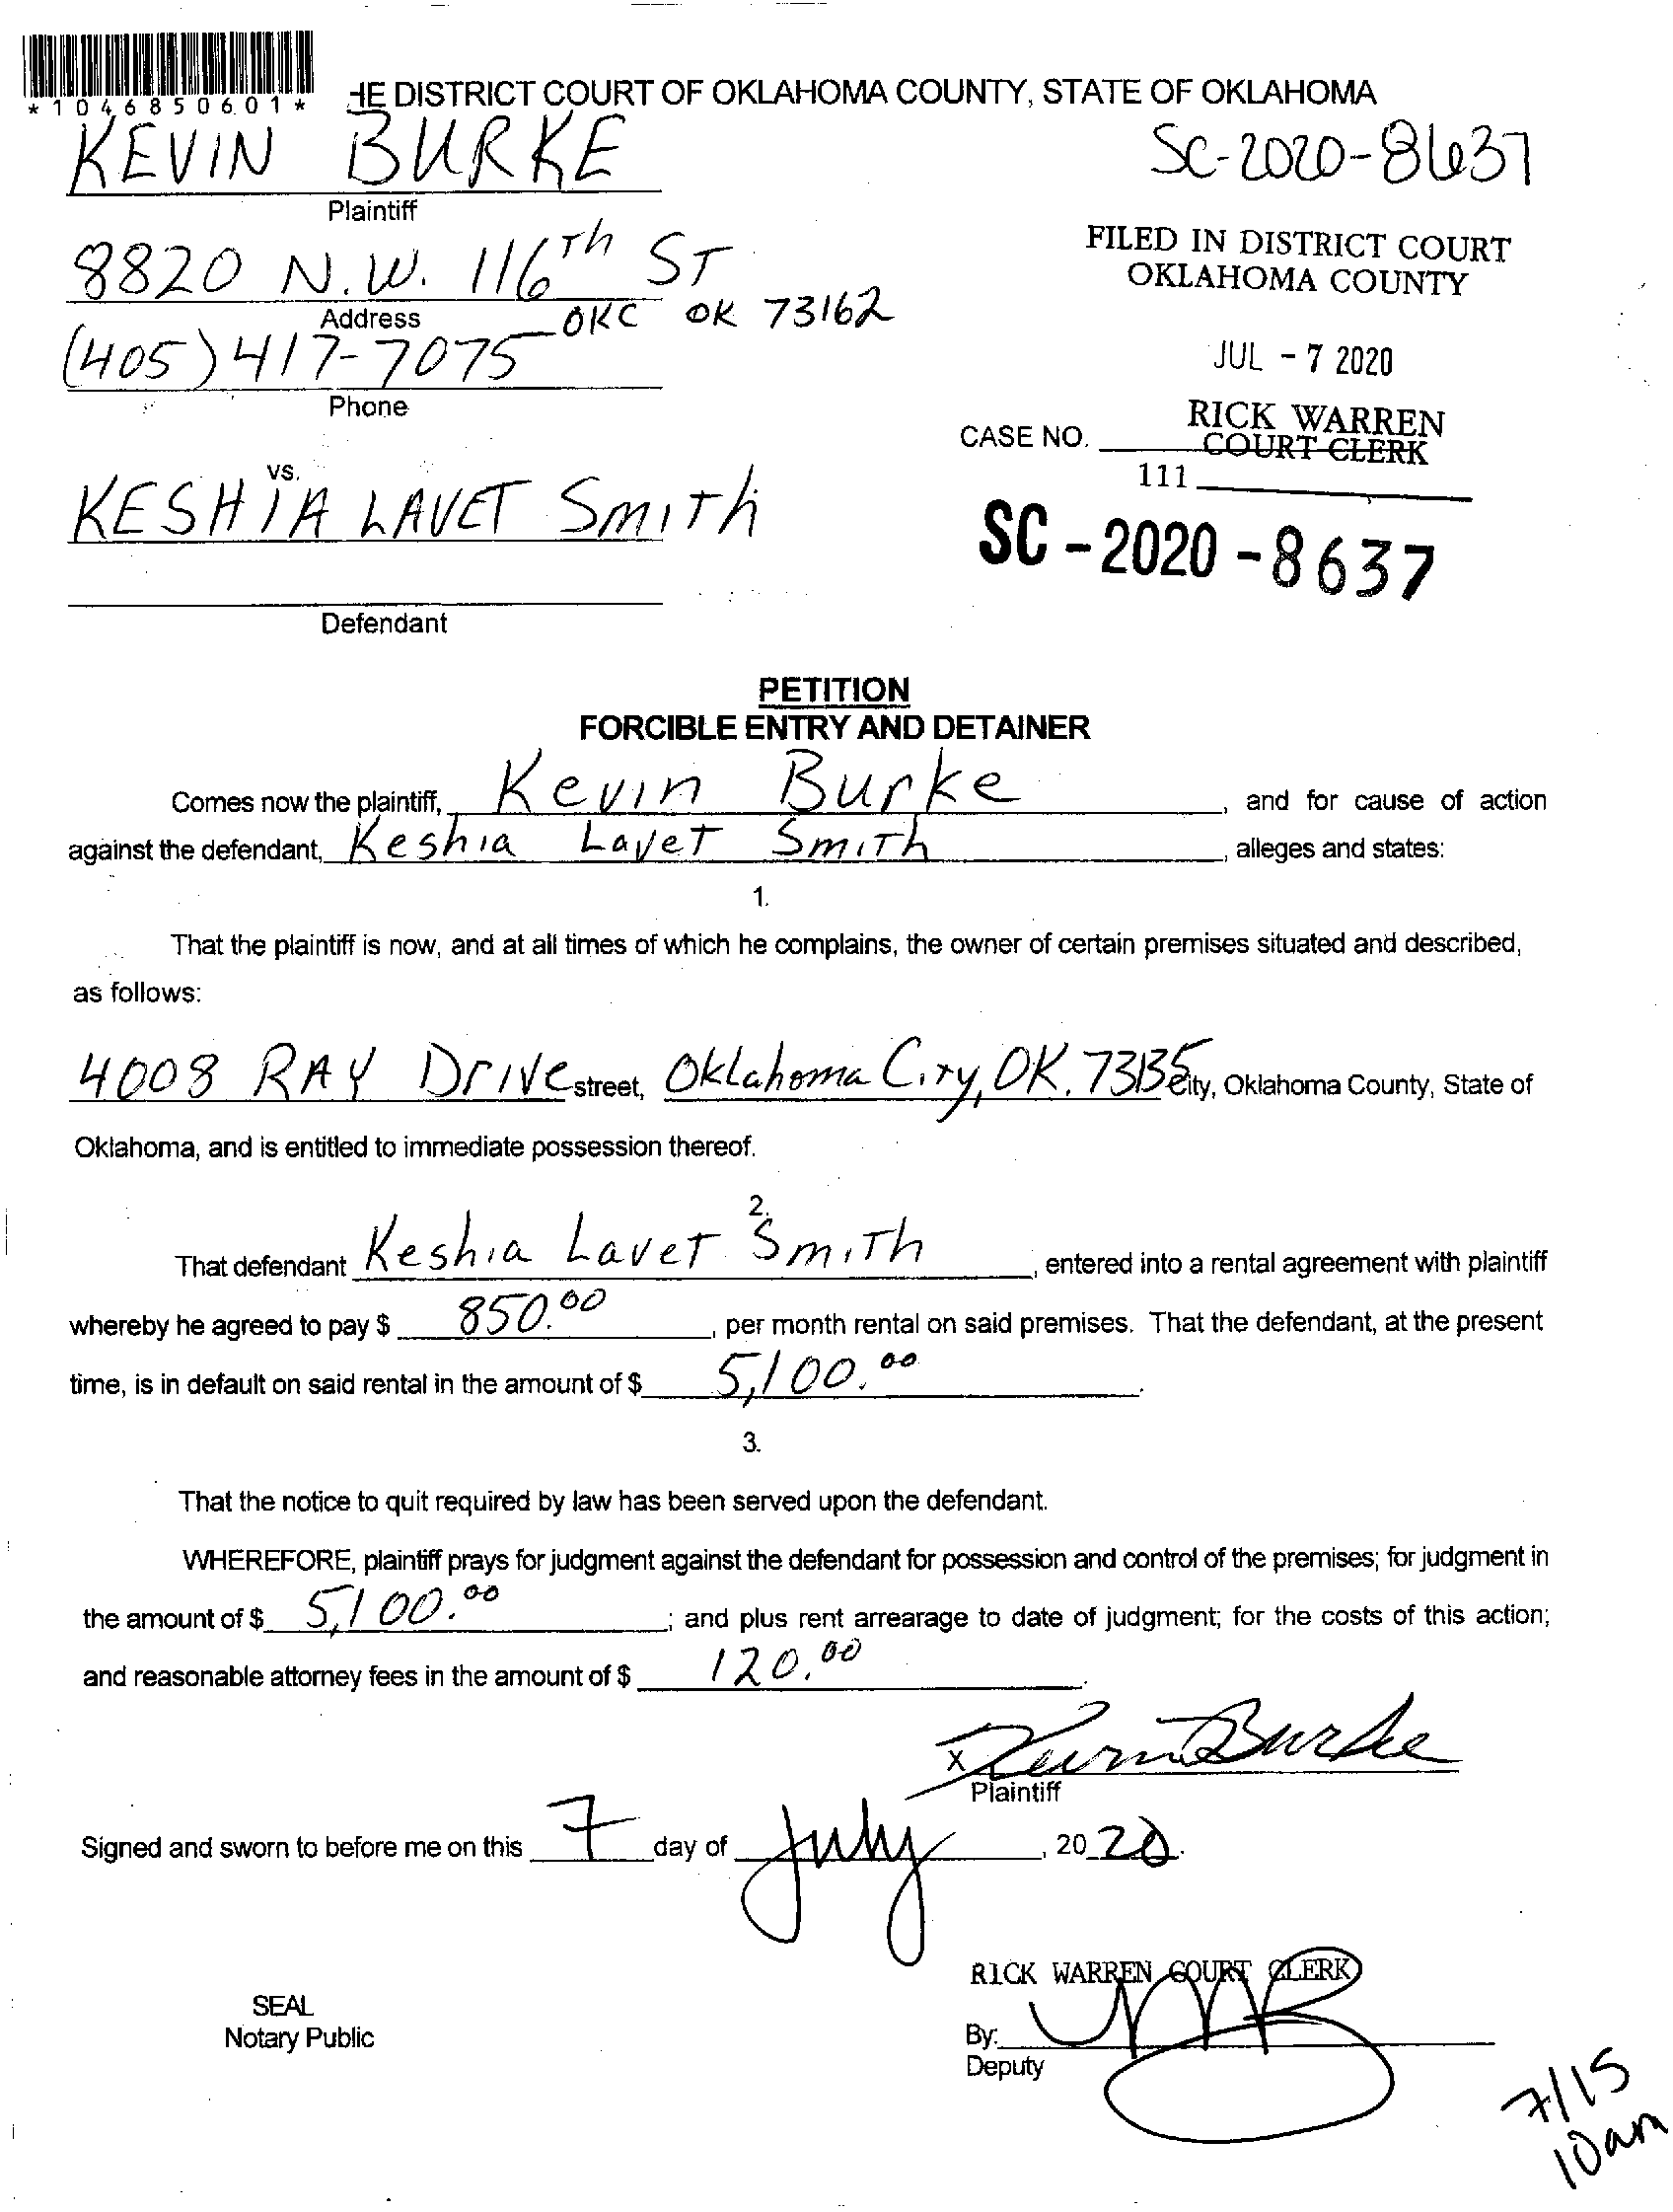 *1046850601*
HE DISTRICT COURT OF OKLAHOMA COUNTY, STATE OF OKLAHOMA
KEVIN BURKE
SC-2020-8637
Plaintiff
FILED IN DISTRICT COURT
OKLAHOMA COUNTY
8820 N.W. 116Th ST
Address
OKC OK 73162
(405) 417-7075
JUL - 7 2020
Phone
RICK WARREN
COURT CLERK
CASE NO.
111
vs.
KESHIA LAVET SmiTh
SC - 2020 - 8637
Defendant
PETITION
FORCIBLE ENTRY AND DETAINER
Comes now the plaintiff, Kevin Burke, and for cause of action
against the defendant, Keshia LaveT SmiTh, alleges and states:
1.
That the plaintiff is now, and at all times of which he complains, the owner of certain premises situated and described,
as follows:
4008 RAY Drive street, Oklahoma CiTy, OK. 73135 City, Oklahoma County, State of
Oklahoma, and is entitled to immediate possession thereof.
2.
That defendant Keshia LaveT SmiTh, entered into a rental agreement with plaintiff
whereby he agreed to pay $ 850.00, per month rental on said premises. That the defendant, at the present
time, is in default on said rental in the amount of $ 5,100.00.
3.
That the notice to quit required by law has been served upon the defendant.
WHEREFORE, plaintiff prays for judgment against the defendant for possession and control of the premises; for judgment in
the amount of $ 5,100.00; and plus rent arrearage to date of judgment; for the costs of this action;
and reasonable attorney fees in the amount of $ 120.00.
X Kevin Burke
Plaintiff
Signed and sworn to before me on this 7 day of July, 2020.
RICK WARREN COURT CLERK
SEAL
Notary Public
By:
Deputy
7/15
10am